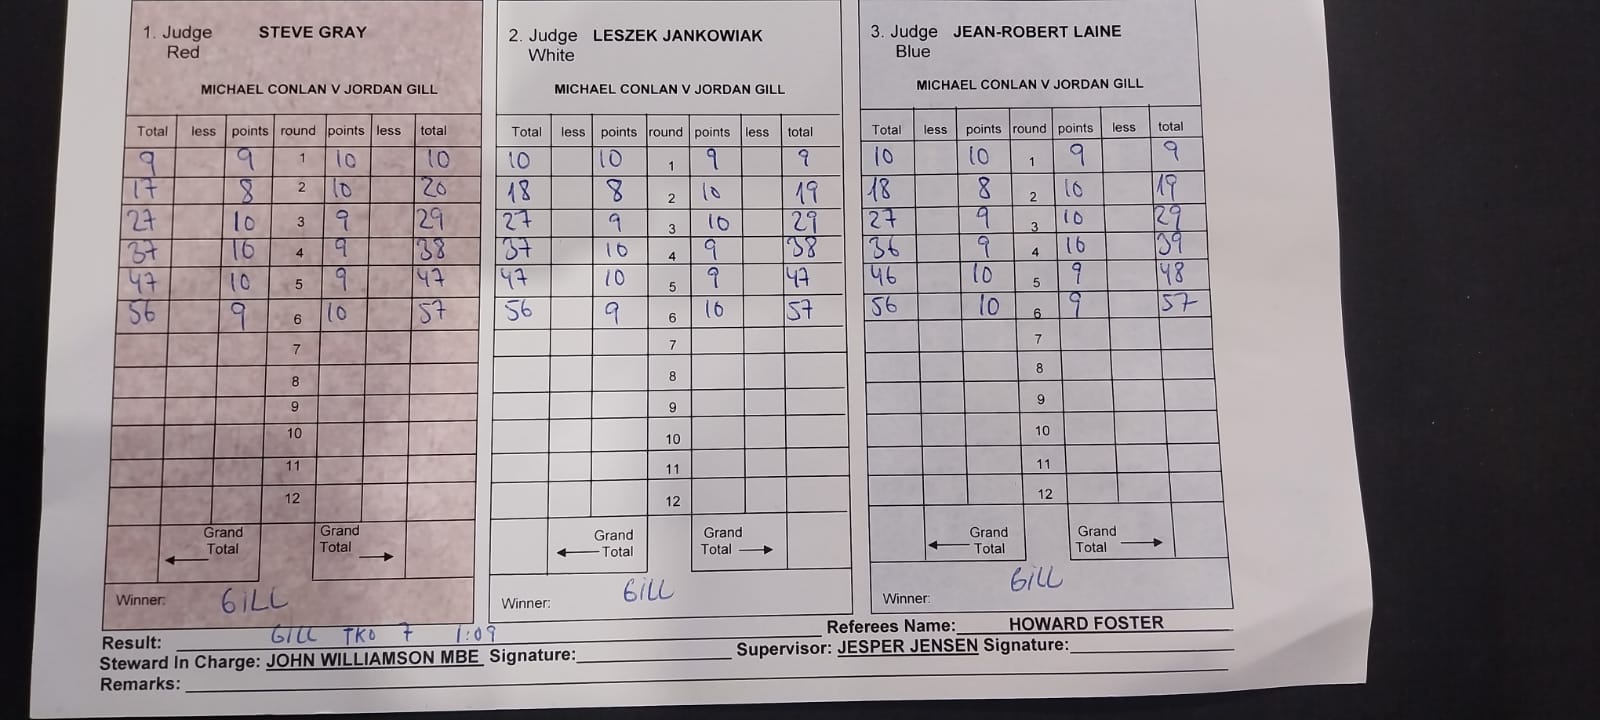 1. Judge STEVE GRAY
Red
MICHAEL CONLAN V JORDAN GILL
Total less points round points less total
9 9 1 10 10
17 8 2 10 20
27 10 3 9 29
37 10 4 9 38
47 10 5 9 47
56 9 6 10 57
7
8
9
10
11
12
Grand Total Grand Total
Winner: GILL
2. Judge LESZEK JANKOWIAK
White
MICHAEL CONLAN V JORDAN GILL
Total less points round points less total
10 10 1 9 9
18 8 2 10 19
27 9 3 10 29
37 10 4 9 38
47 10 5 9 47
56 9 6 10 57
7
8
9
10
11
12
Grand Total Grand Total
Winner: GILL
3. Judge JEAN-ROBERT LAINE
Blue
MICHAEL CONLAN V JORDAN GILL
Total less points round points less total
10 10 1 9 9
18 8 2 10 19
27 9 3 10 29
36 9 4 10 39
46 10 5 9 48
56 10 6 9 57
7
8
9
10
11
12
Grand Total Grand Total
Winner: GILL
Result: GILL TKO 7 1:09 Referees Name: HOWARD FOSTER
Steward In Charge: JOHN WILLIAMSON MBE Signature: Supervisor: JESPER JENSEN Signature:
Remarks: